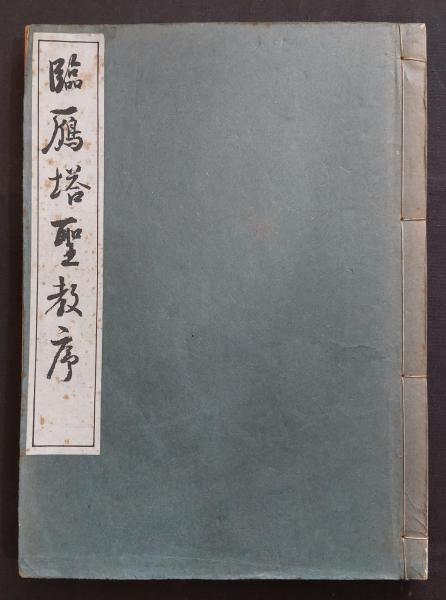 臨雁塔聖教序